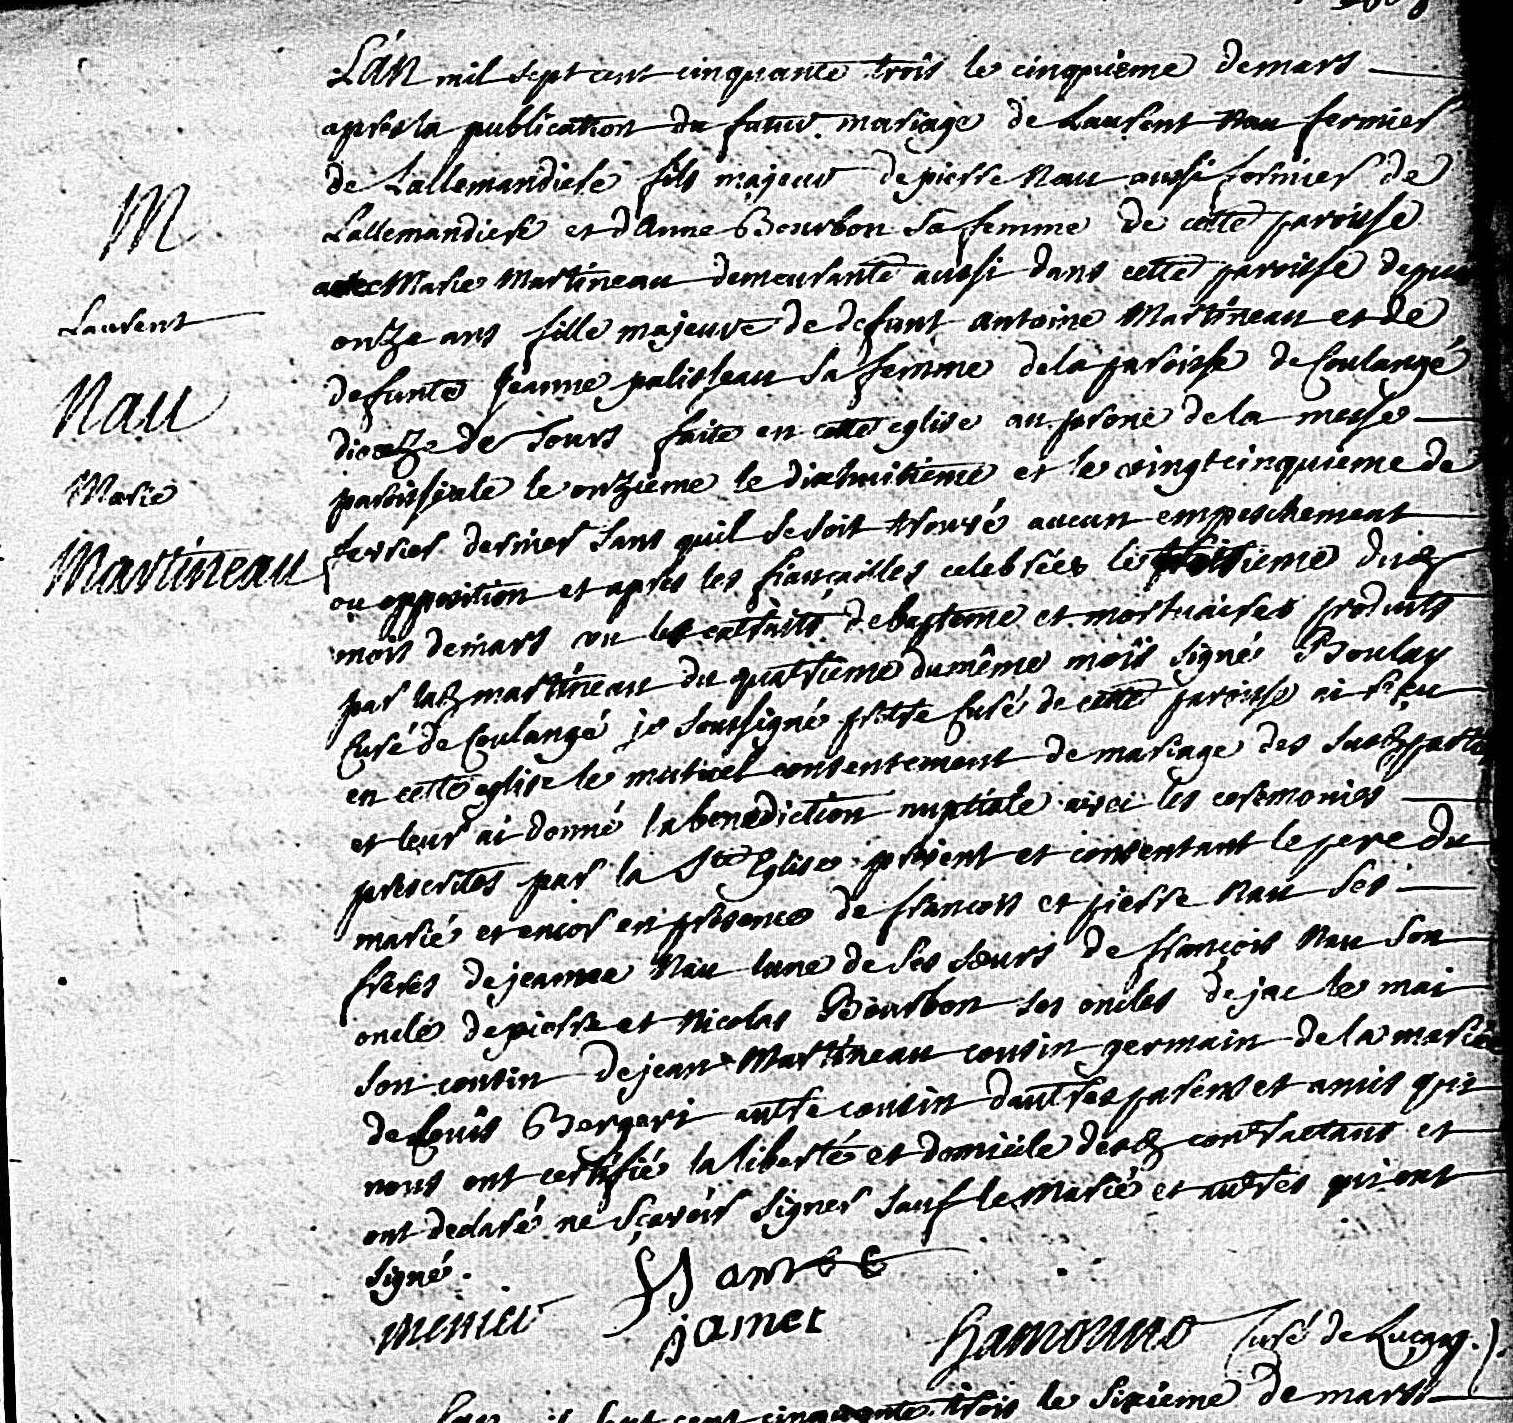 L'an mil sept cent cinquante trois le cinquieme de mars
apres la publication du futur mariage de Laurent Nau fermier
de Lallemandiere fils majeur de pierre Nau aussi fermier de
Lallemandiere et d'Anne Bourbon sa femme de cette paroisse
M
avec Marie Martineau demeurante aussi dans cette paroisse depuis
Laurent
onze ans fille majeure de defunt Antoine Martineau et de
defunte Jeanne palisseau sa femme de la paroisse de Coulangé
Nau
diocèze de Tours faite en cette eglise au prone de la messe
paroissiale le onzieme le dixhuitieme et le vingtcinquieme de
Marie
fevrier dernier sans quil se soit trouvé aucun empeschement
Martineau
ou opposition et apres les fiançailles celebrées le troisieme dudt
mois de mars vu les extraits de bapteme et mortuaires produits
par ladt martineau du quatrieme du même mois signé Boulay
Curé de Coulangé je soussigné prêtre Curé de cette paroisse ai reçu
en cette eglise le mutuel consentement de mariage des susdt parties
et leur ai donné la benediction nuptiale avec les ceremonies
prescrites par la Ste Eglise present et consentant le pere du
marié et encor en presence de françois et pierre Nau ses
freres de jeanne Nau lune de ses sœurs de françois Nau son
oncle de pierre et Nicolas Bourbon ses oncles de jac le mai
son cousin de jean Martineau cousin germain de la mariée
de Louis Bergeri autre cousin dautres parens et amis qui
nous ont certifié la liberté et domicile desdt contractans et
ont declaré ne sçavoir signer sauf le Marié et autres qui ont
signé.
menier
jamet
hamouno Curé de Luçay.
Lan mil sept cent cinquante trois le sixieme de mars